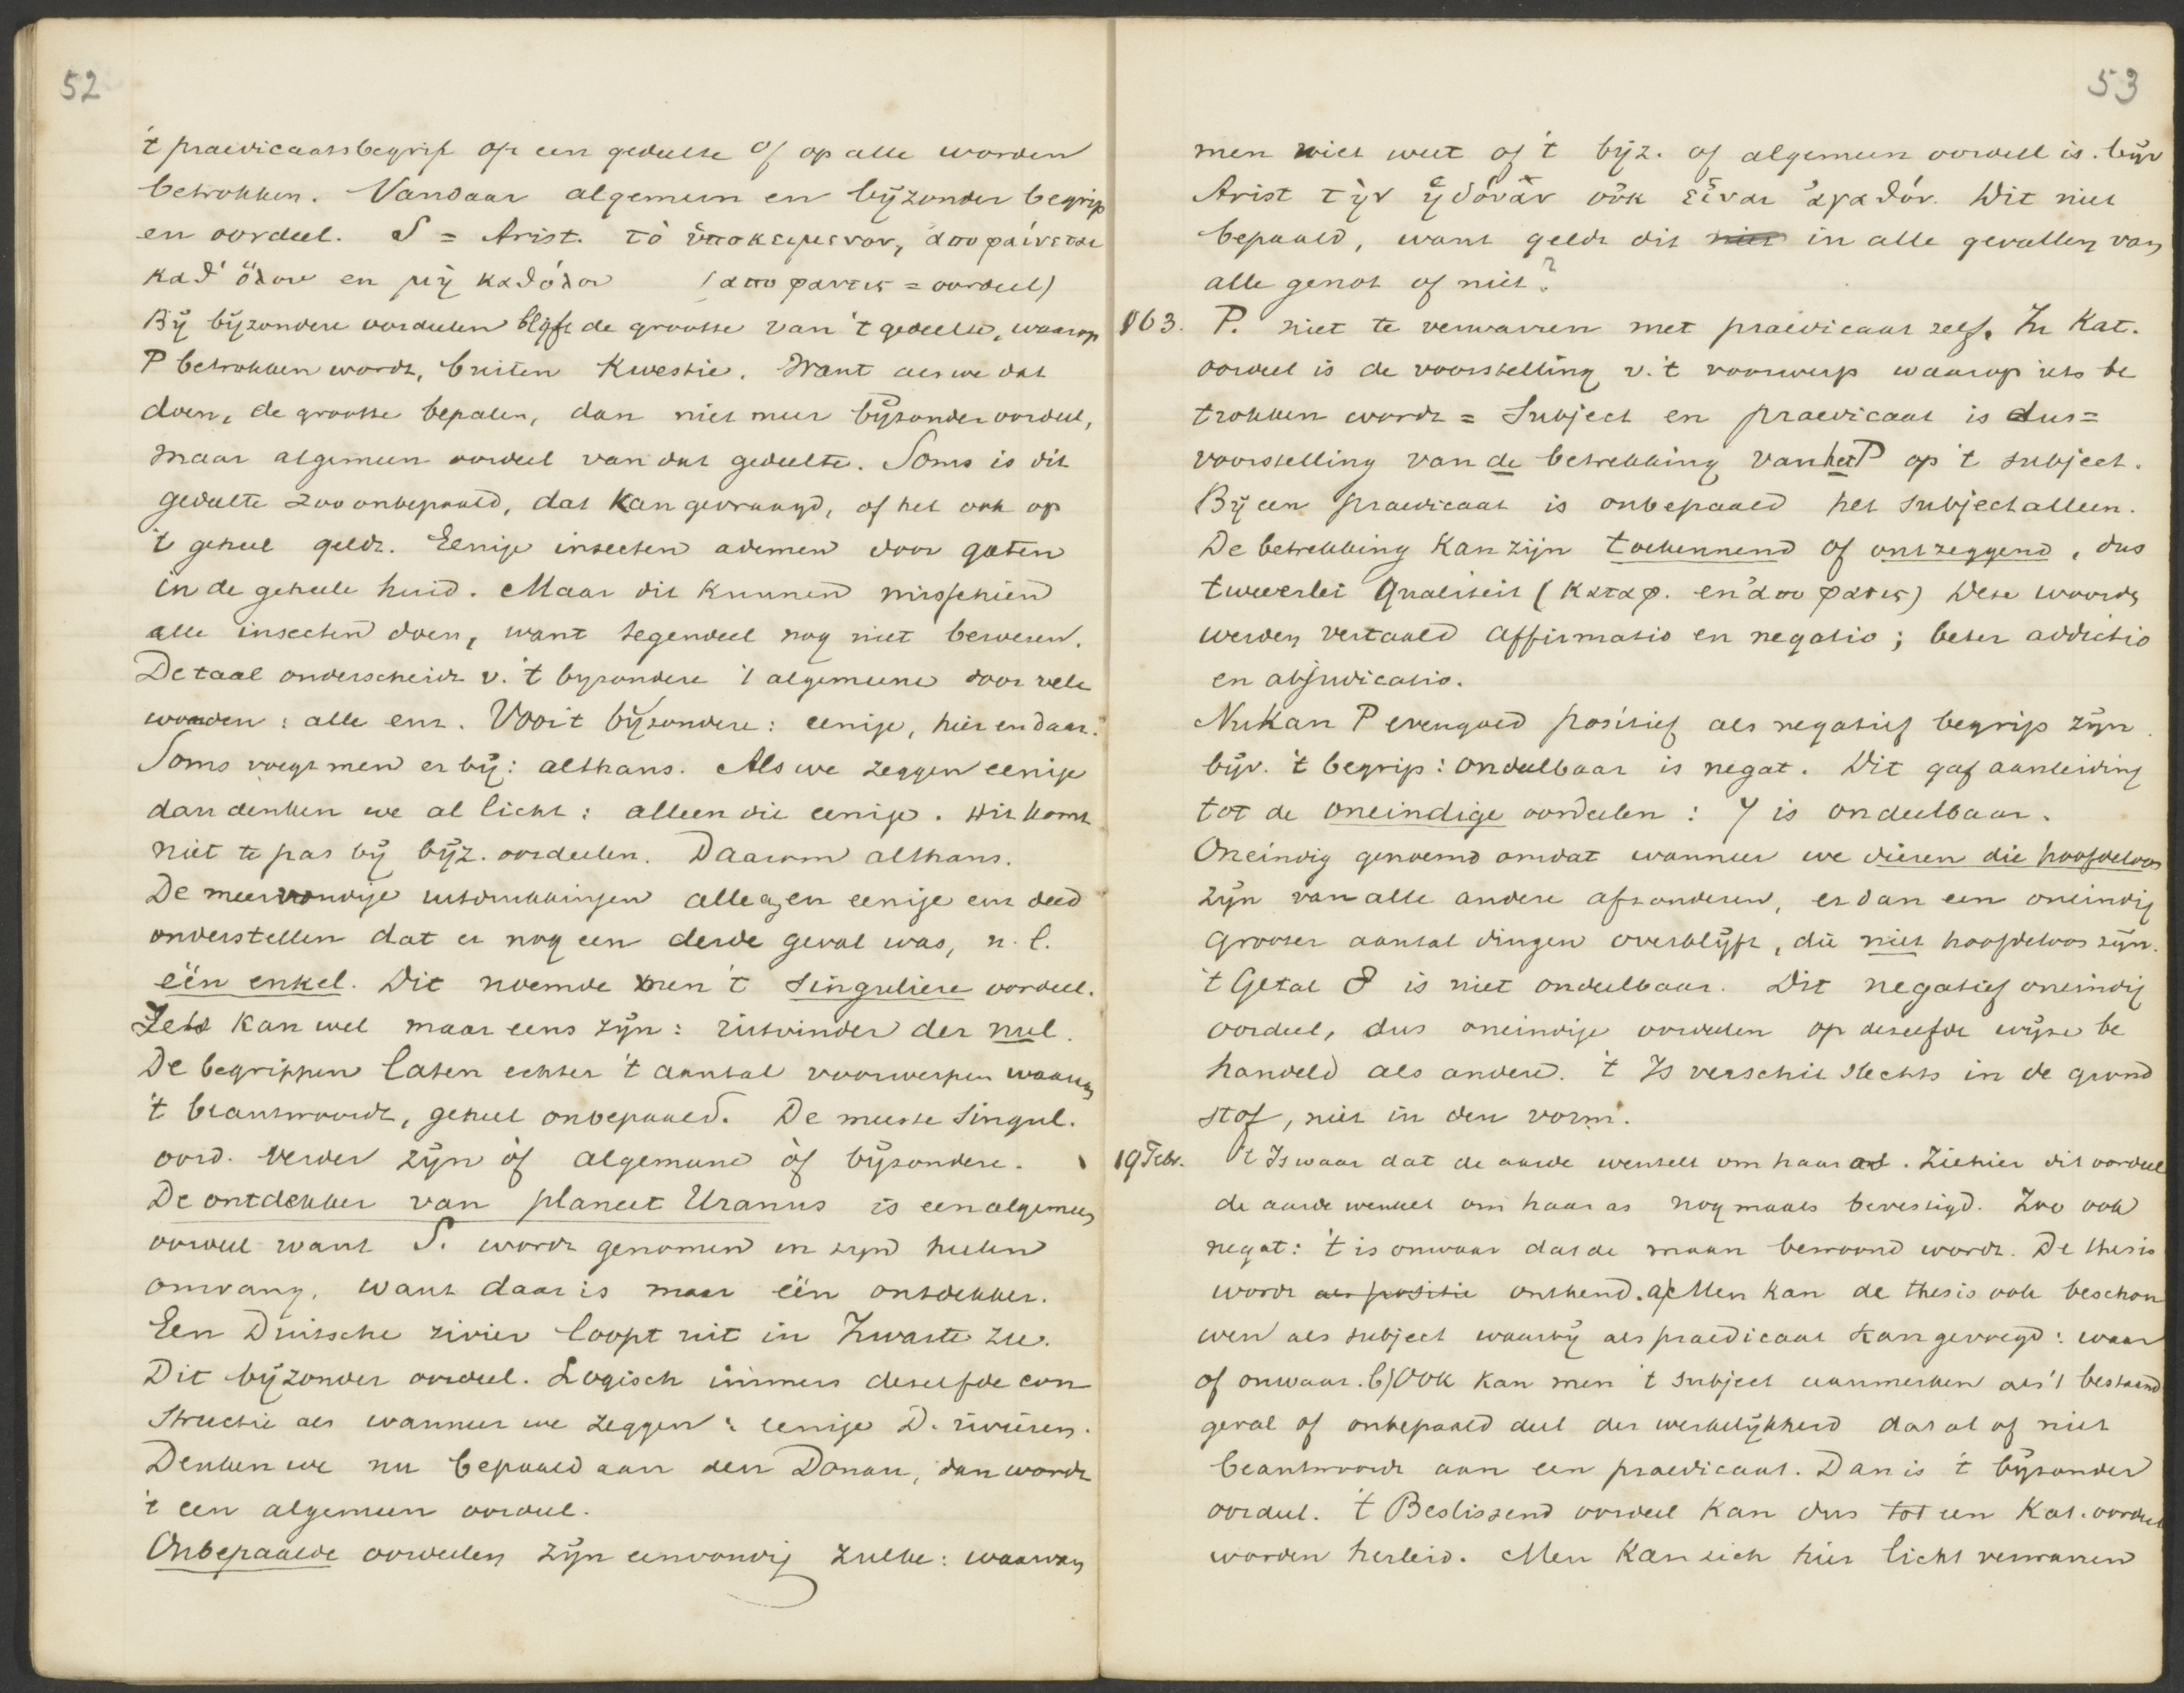 52
't praedicaatsbegrip op een gedeelte of op alle worden
betrokken. Vandaar algemeen en bijzonder begrip
en oordeel. S = Arist. τὸ ὑποκειμενον, ἀποφαίνεται
καθ' ὅλου en μὴ καθόλου (αποφανσις = oordeel)
Bij bijzondere oordeelen blijft de grootte van 't gedeelte, waarop
P betrokken wordt, buiten kwestie. Want als we dat
doen, de grootte bepalen, dan niet meer bijzonder oordeel,
maar algemeen oordeel van dat gedeelte. Soms is dit
gedeelte zoo onbepaald, dat kan gevraagd, of het ook op
't geheel geldt. Eenige insecten ademen door gaten
in de geheele huid. Maar dit kunnen misschien
alle insecten doen, want tegendeel nog niet bewezen.
De taal onderscheidt v. 't byzondere 't algemeene door vele
woorden: alle enz. Voor 't bijzondere: eenige, hier en daar.
Soms voegt men er bij: althans. Als we zeggen eenige
dan denken we al licht: alleen die eenige. Dit komt
niet te pas bij bijz. oordeelen. Daarom althans.
De meervoudige uitdrukkingen alle a, en eenige enz deed
onderstellen dat er nog een derde geval was, n.l.
één enkel. Dit noemde men 't singuliere oordeel.
Iets kan wel maar eens zijn: uitvinder der nul.
De begrippen laten echter 't aantal voorwerpen waaraan
't beantwoordt, geheel onbepaald. De meeste singul.
oord. verder zijn òf algemeene òf bijzondere.
De ontdekker van planeet Uranus is een algemeen
oordeel want S. wordt genomen in zijn heelen
omvang, want daar is maar één ontdekker.
Een Duitsche rivier loopt uit in Zwarte Zee.
Dit bijzonder oordeel. Logisch immers dezelfde con
structie als wanneer we zeggen: eenige D. rivieren.
Denken we nu bepaald aan den Donau, dan wordt
't een algemeen oordeel.
Onbepaalde oordeelen zijn eenvoudig zulke: waarvan
53
men niet weet of 't bijz. of algemeen oordeel is. bijv
Arist τὴν ἡδόνὰν οὐκ εἶναι ἀγαθόν. Dit niet
bepaald, want geldt dit niet in alle gevallen van
alle genot of niet?
§63. P. niet te verwarren met praedicaat zelf. In Kat.
oordeel is de voorstelling v. 't voorwerp waarop iets be
trokken wordt = Subject en praedicaat is dus =
voorstelling van de betrekking van het P op 't subject.
Bij een praedicaat is onbepaald het subject alleen.
De betrekking kan zijn toekennend of ontzeggend, dus
tweeerlei qualiteit (καταφ. en ἀποφατις) Deze woorden
werden vertaald affirmatio en negatio; beter addictio
en abjudicatio.
Nu kan P evengoed positief als negatief begrip zijn.
bijv. 't begrip: ondeelbaar is negat. Dit gaf aanleiding
tot de oneindige oordeelen: 7 is ondeelbaar.
Oneindig genoemd omdat wanneer we dieren die hoofdeloos
zijn van alle andere afzonderen, er dan een oneindig
grooter aantal dingen overblijft, die niet hoofdeloos zijn.
't Getal 8 is niet ondeelbaar. Dit negatief oneindig
oordeel, dus oneindige oordeelen op dezelfde wijze be
handeld als andere. 't Is verschil slechts in de grond
stof, niet in den vorm.
19 Febr. 't Is waar dat de aarde wentelt om haar as. Ziehier dit oordeel
de aarde wentelt om haar as nogmaals bevestigd. Zoo ook
negat: 't is onwaar dat de maan bewoond wordt. De thesis
wordt als positie ontkend. a) Men kan de thesis ook beschou
wen als subject waarbij als praedicaat kan gevoegd: waar
of onwaar. b) Ook kan men 't subject aanmerken als 't bestaand
geval of onbepaald deel der werkelijkheid dat al of niet
beantwoordt aan een praedicaat. Dan is 't bijzonder
oordeel. 't Beslissend oordeel kan dus tot een Kat. oordeel
worden herleid. Men kan zich hier licht verwarren